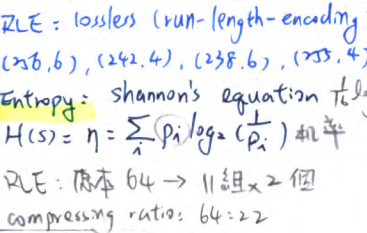 RLE: lossless (run-length-encoding
(256,6), (242.4), (238.6), (255,4)
Entropy: shannon's equation 1/16
H(S) = η = Σi Pi log2 (1/Pi) 机率
RLE: 原本 64 → 11組 x 2個
compressing ratio: 64:22